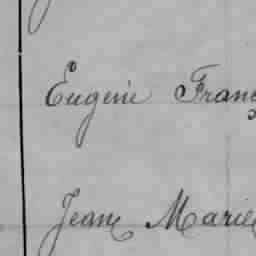 Eugénie Franc
Jeane Marie